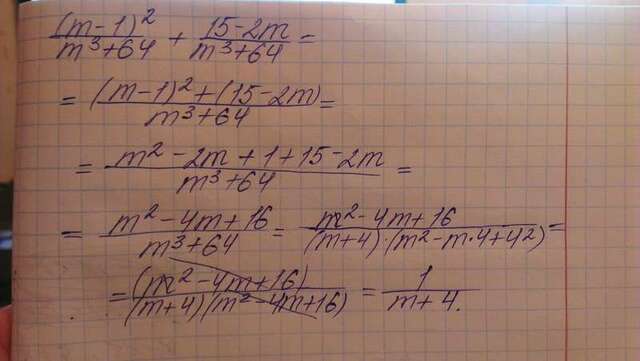 (m-1)²/m³+64 + 15-2m/m³+64 =
= (m-1)²+(15-2m)/m³+64 =
= m²-2m+1+15-2m/m³+64 =
= m²-4m+16/m³+64 = m²-4m+16/(m+4)·(m²-m·4+4²) =
= (m²-4m+16)/(m+4)(m²-4m+16) = 1/m+4.